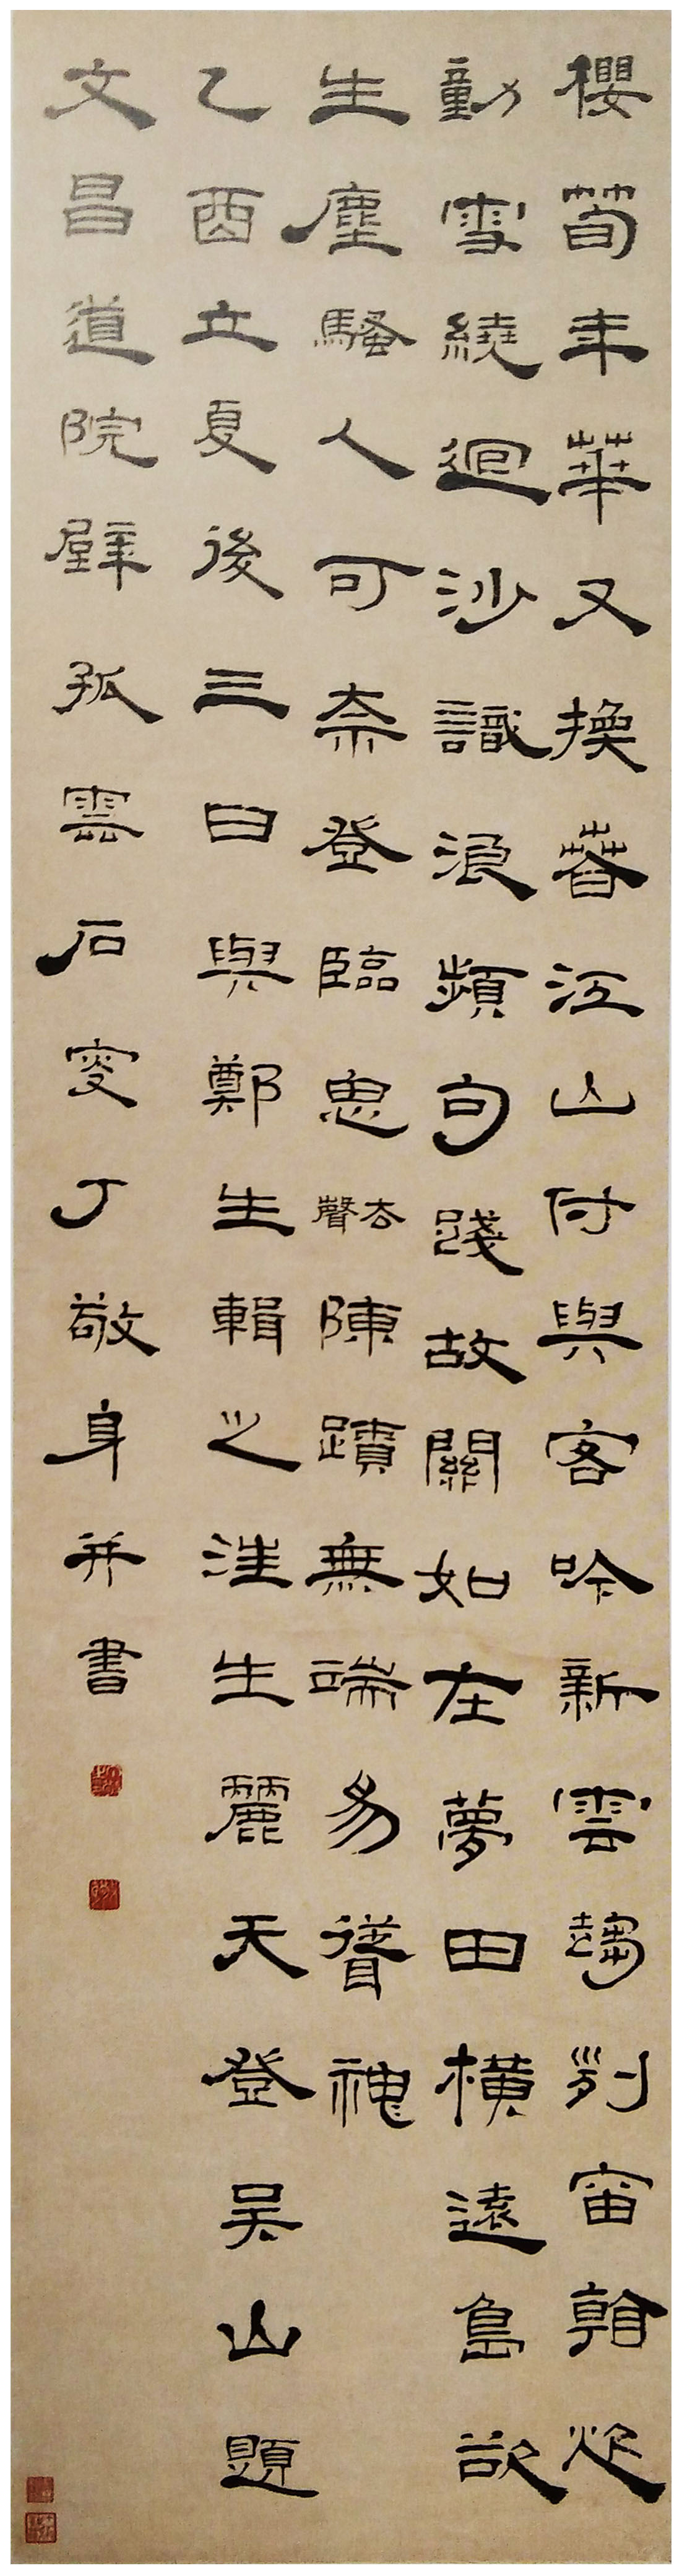 櫻筍年華又換萅江山付與客吟新雲趨列宙朝炗
動雪繞迴沙識浪頻句踐故關如在夢田橫遠島欲
生塵騷人可奈登臨思去聲陳蹟無端易聳神
乙酉立夏後三日與鄭生輯之汪生麗天登吳山題
文昌道院壁孤雲石叟丁敬身并書